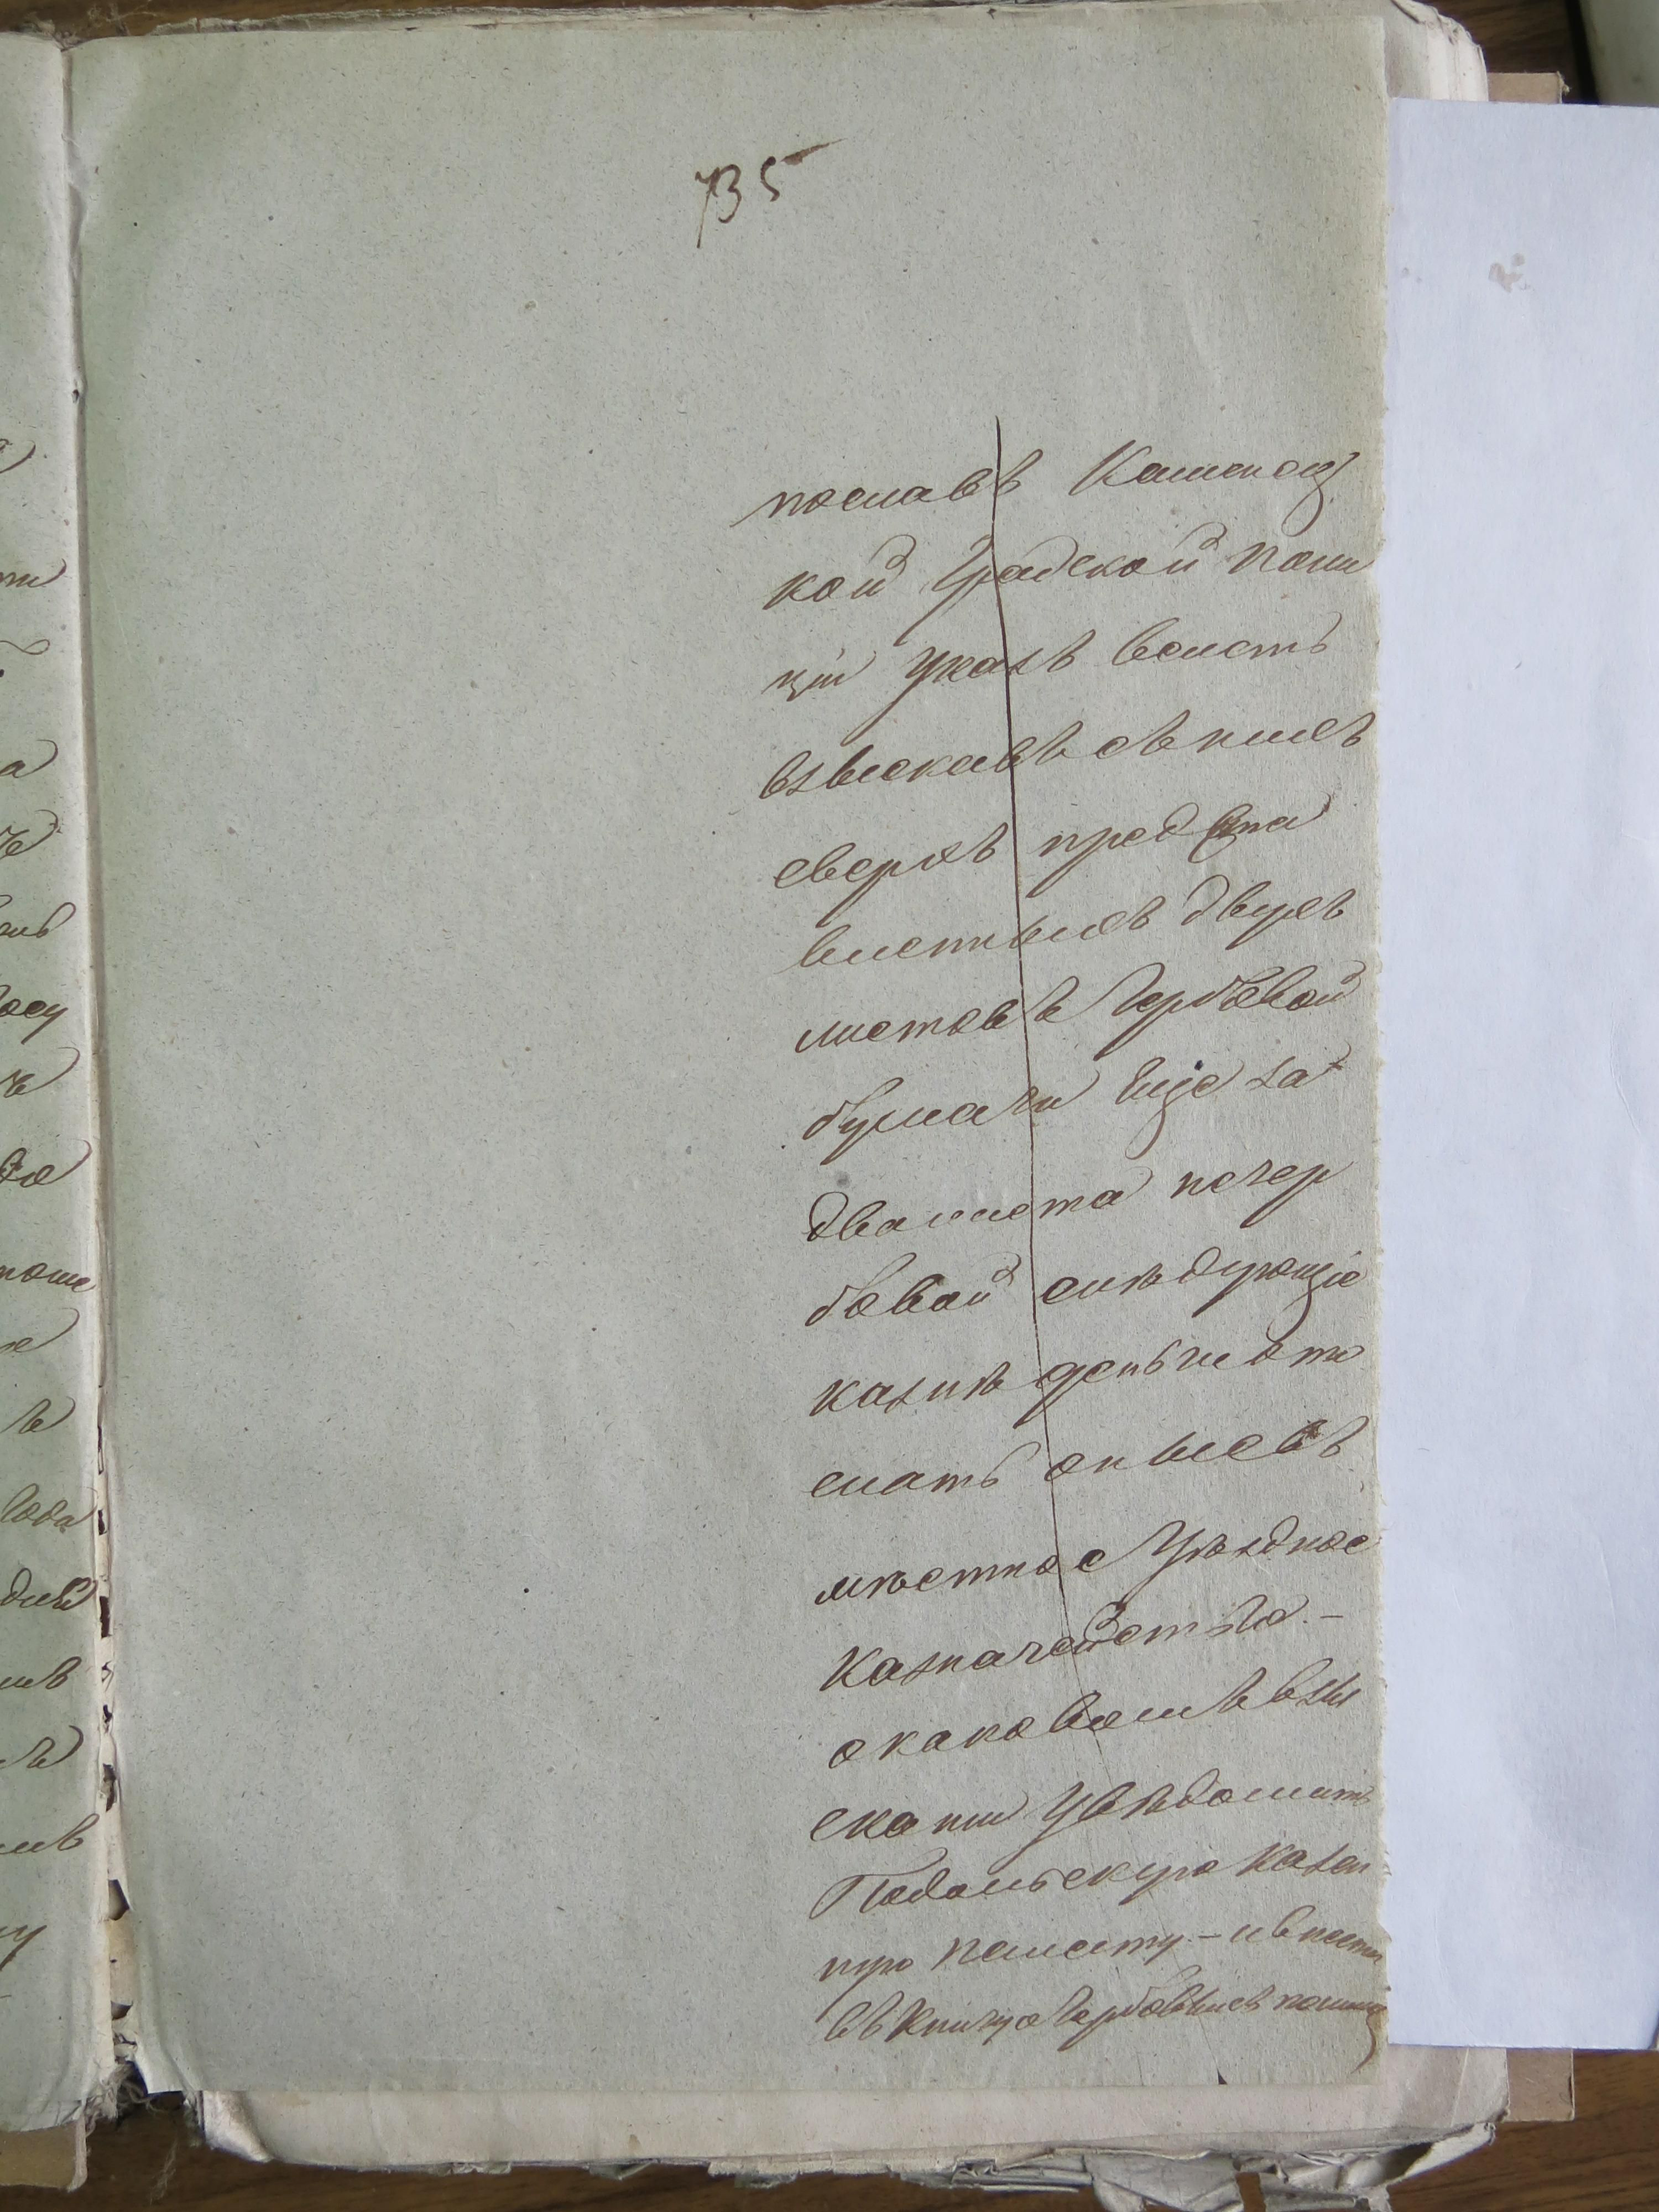 735
пославъ Каменец
кой Градской поли
ціи указъ велеть
взыскавъ съ нихъ
сверхъ предста
вленныхъ двухъ
листовъ Гербовой
бумаги Еще за
два листа негер
бовой следующіе
казнѣ деньги ото
слать оныевъ
мѣстное Уѣздное
Казначейство. —
о каковомъ взы
сканіи Увѣдомить
Подольскую Казен
ную палату. — и внести
въ Книгу о Гербовыхъ пошлин